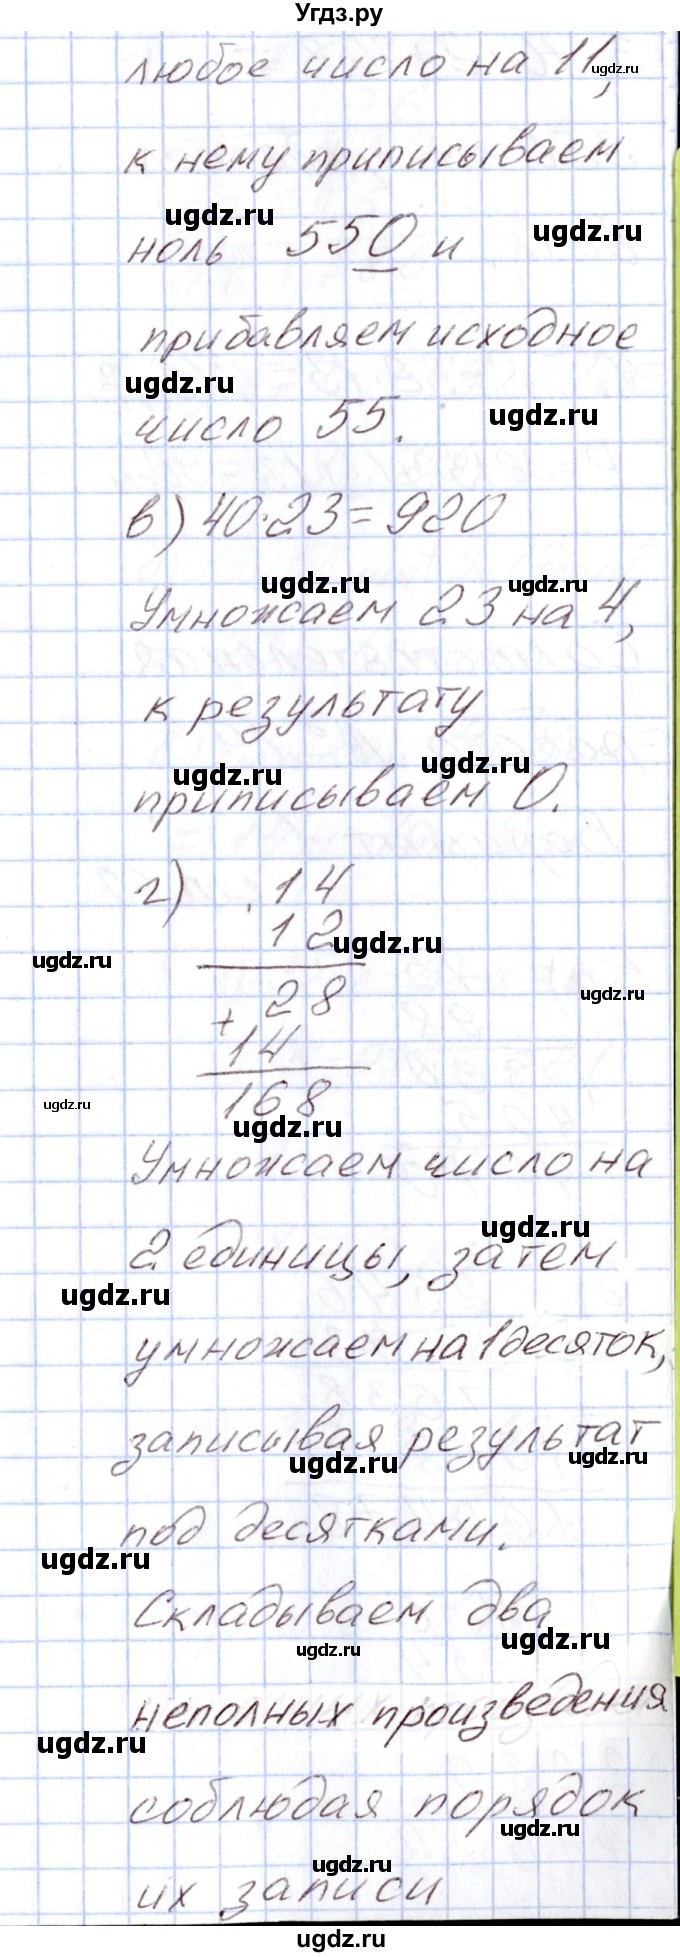 Угдз.ру
любое число на 11,
ugdz.ru
к нему приписываем
ugdz.ru
ugdz.ru
ноль 550 и
прибавляем исходное
ugdz.ru
ugdz.ru
число 55.
в) 40·23=920
ugdz.ru
ugdz.ru
Умножаем 23 на 4,
к результату
ugdz.ru
ugdz.ru
приписываем 0.
г) .14
12
ugdz.ru
ugdz.ru
28
ugdz.ru
+
14
168
ugdz.ru
ugdz.ru
Умножаем число на
ugdz.ru
2 единицы, затем
ugdz.ru
умножаем на 1 десяток,
записывая результат
ugdz.ru
ugdz.ru
под десятками.
ugdz.ru
Складываем два
ugdz.ru
ugdz.ru
неполных произведения
ugdz.ru
соблюдая порядок
ugdz.ru
ugdz.ru
их записи
ugdz.ru